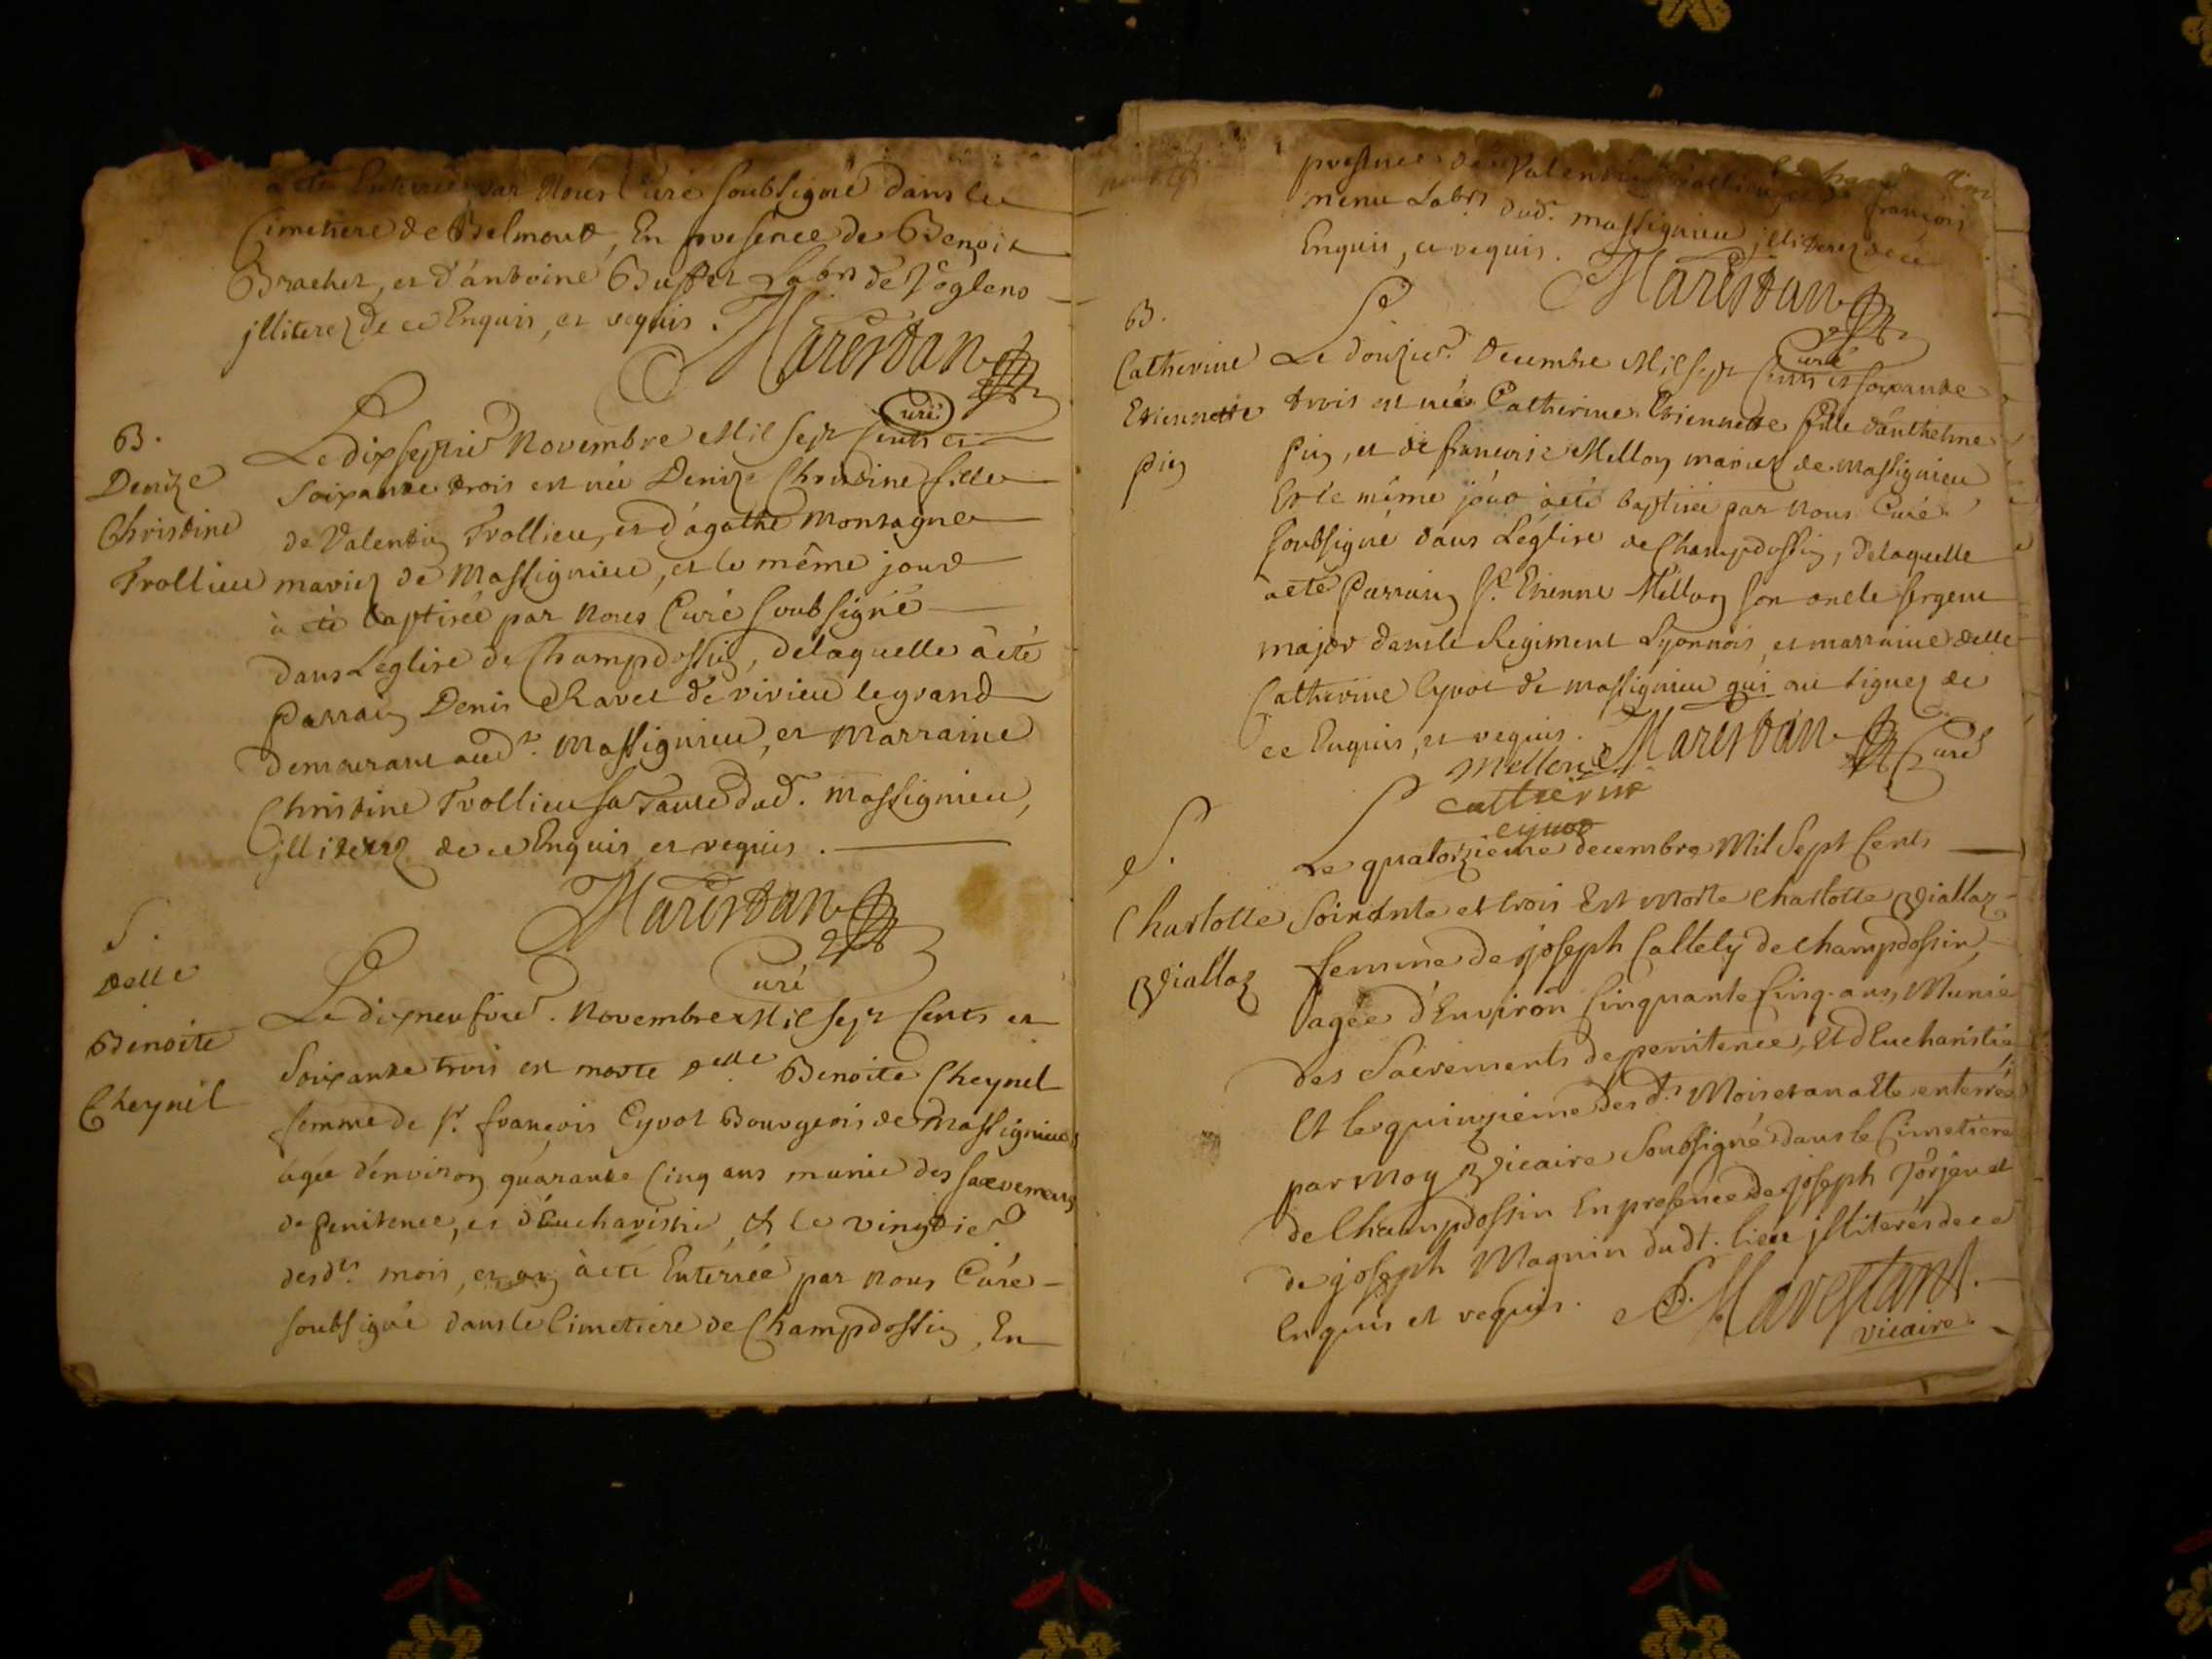 a été Enterré par Nous Curé soubsigné dans le
Cimetiere de Belmont, En presence de Benoit
Brachet, et d'antoine Buffet Labrs de Veglens
jlliterez de ce Enquis, et requis.
Marestan
Curé
B.
Denize
Christine
Trollieu
Le dixseptie Novembre Mil sept Cents et
soixante trois est née Denize Christine fille
de Valentin Trollieu, et d'agathe Montagne
mariez de Massignieu, et le même jour
à été baptisée par Nous Curé soubsigné
dans Leglise de Champdossin, delaquelle à été
Parrain Denis Ravet de virieu legrand
demeurant aud. Massignieu, et Marraine
Christine Trollieu sa Tante dud. Massignieu,
jlliterez de ce Enquis et requis.
Marestan
Curé
S.
delle
Benoite
Cheynel
Le dixneufvie. Novembre Mil sept Cents et
soixante trois est morte delle Benoite Cheynel
femme de sr. françois Cyvot Bourgeois de Massignieu
agée d'environ quarante Cinq ans munie des sacremens
de penitence, et d'Eucharistie, et le vingtie
desdts. mois, et an à été Enterrée par nous Curé
soubsigné dans le Cimetiere de Champdossin, En
presence de Valentin Trollieu, et de françois
menu Labrs dud. Massignieu jlliterez de ce
Enquis, et requis.
Marestan
Curé
B.
Catherine
Etiennette
Pin
Le douzie. Decembre Mil sept Cents et soixante
trois est née Catherine Etiennette fille d'anthelme
Pin, et de françoise Mellon mariez de Massignieu
Et le même jour à été baptisée par Nous Curé
soubsigné dans Léglise de Champdossin, delaquelle
à eté Parrain sr. Etienne Mellon son oncle sergent
major dans le Regiment Lyonnois, et marraine delle
Catherine Cyvot de Massignieu qui ont signez de
ce Enquis, et requis.
Mellon
Marestan Curé
Catherine
cyvot
S.
Charlotte
Viallaz
Le quatorzieme decembre Mil Sept Cents
Soixante et trois Est Morte Charlotte Viallaz
femme de joseph Callely de Champdossin,
agée d'Environ Cinquante Cinq ans, Munie
des Sacrements de penitence, Et d'Eucharistie,
Et le quinzieme des dts Mois et an a Ete enterrée
par Moy Vicaire Soubsigné dans le Cimetiere
de Champdossin En presence de joseph Torjon et
de joseph Magnin dudt. lieu jlliterés de ce
Enquis et requis.
Marestant.
vicaire